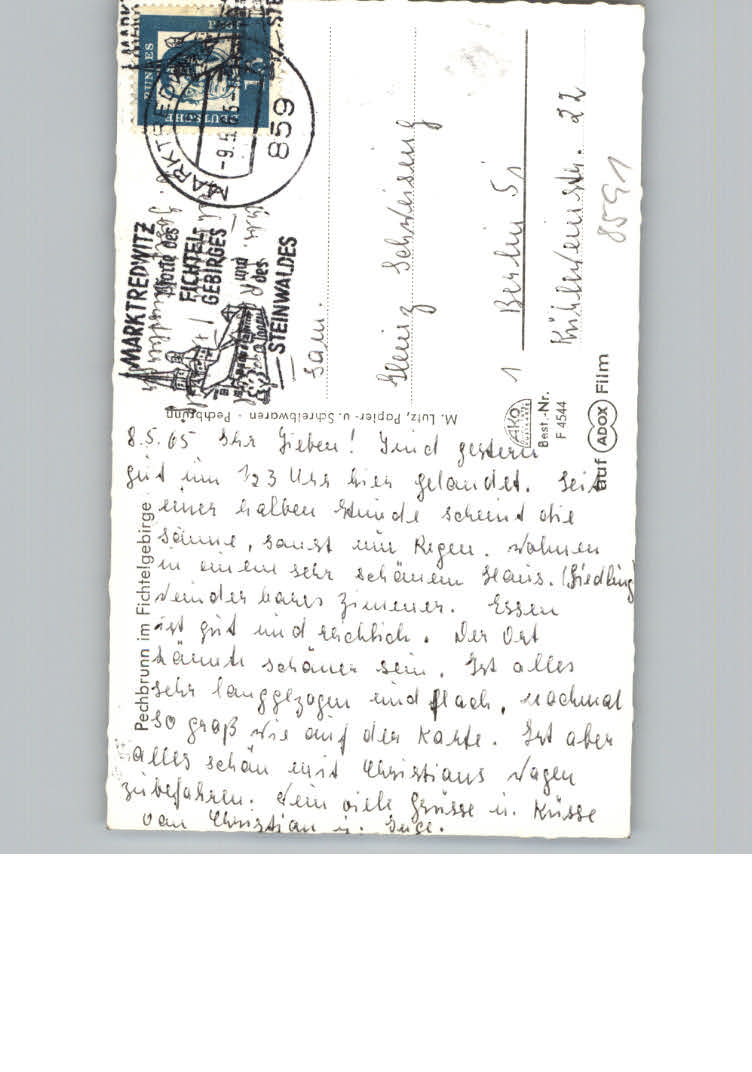 8.5.65 Ihr Lieben! Sind gestern
gut um 1/23 Uhr hier gelandet. Seit
einer halben Stunde scheint die
Sonne, sonst nur Regen. Wohnen
in einem sehr schönem Haus. (Siedlung)
Wunderbares Zimmer. Essen
ist gut und reichlich. Der Ort
könnte schöner sein. Ist alles
sehr langgezogen und flach, nochmal
so groß wie auf der Karte. Ist aber
alles schön mit Christians Wagen
zubefahren. Nun viele Grüsse u. Küsse
von Christian u. Inge.
Pechbrunn im Fichtelgebirge
M. Lutz, Papier- u. Schreibwaren - Pechbrunn
Fam.
Heinz
1 Berlin 51
8591
AKO
Best.-Nr.
F 4544
auf ADOX Film
MARKTREDWITZ
Pforte des
FICHTEL-
GEBIRGES
und
des
STEINWALDES
MARKTREDWITZ
859
DEUTSCHE
BUNDES
POST